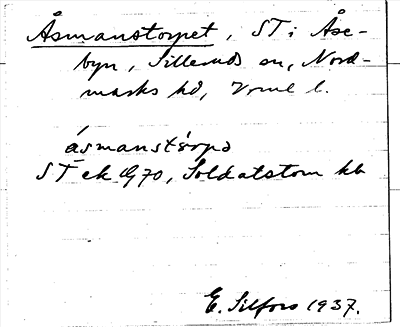 Åsmanstorpet, ST i Åse-
byn, Silleruds sn, Nord-
marks hd, Vrml l.
åsmanstȯrpə
ST ek G70, Soldatstom kb
E. Silfors 1937.